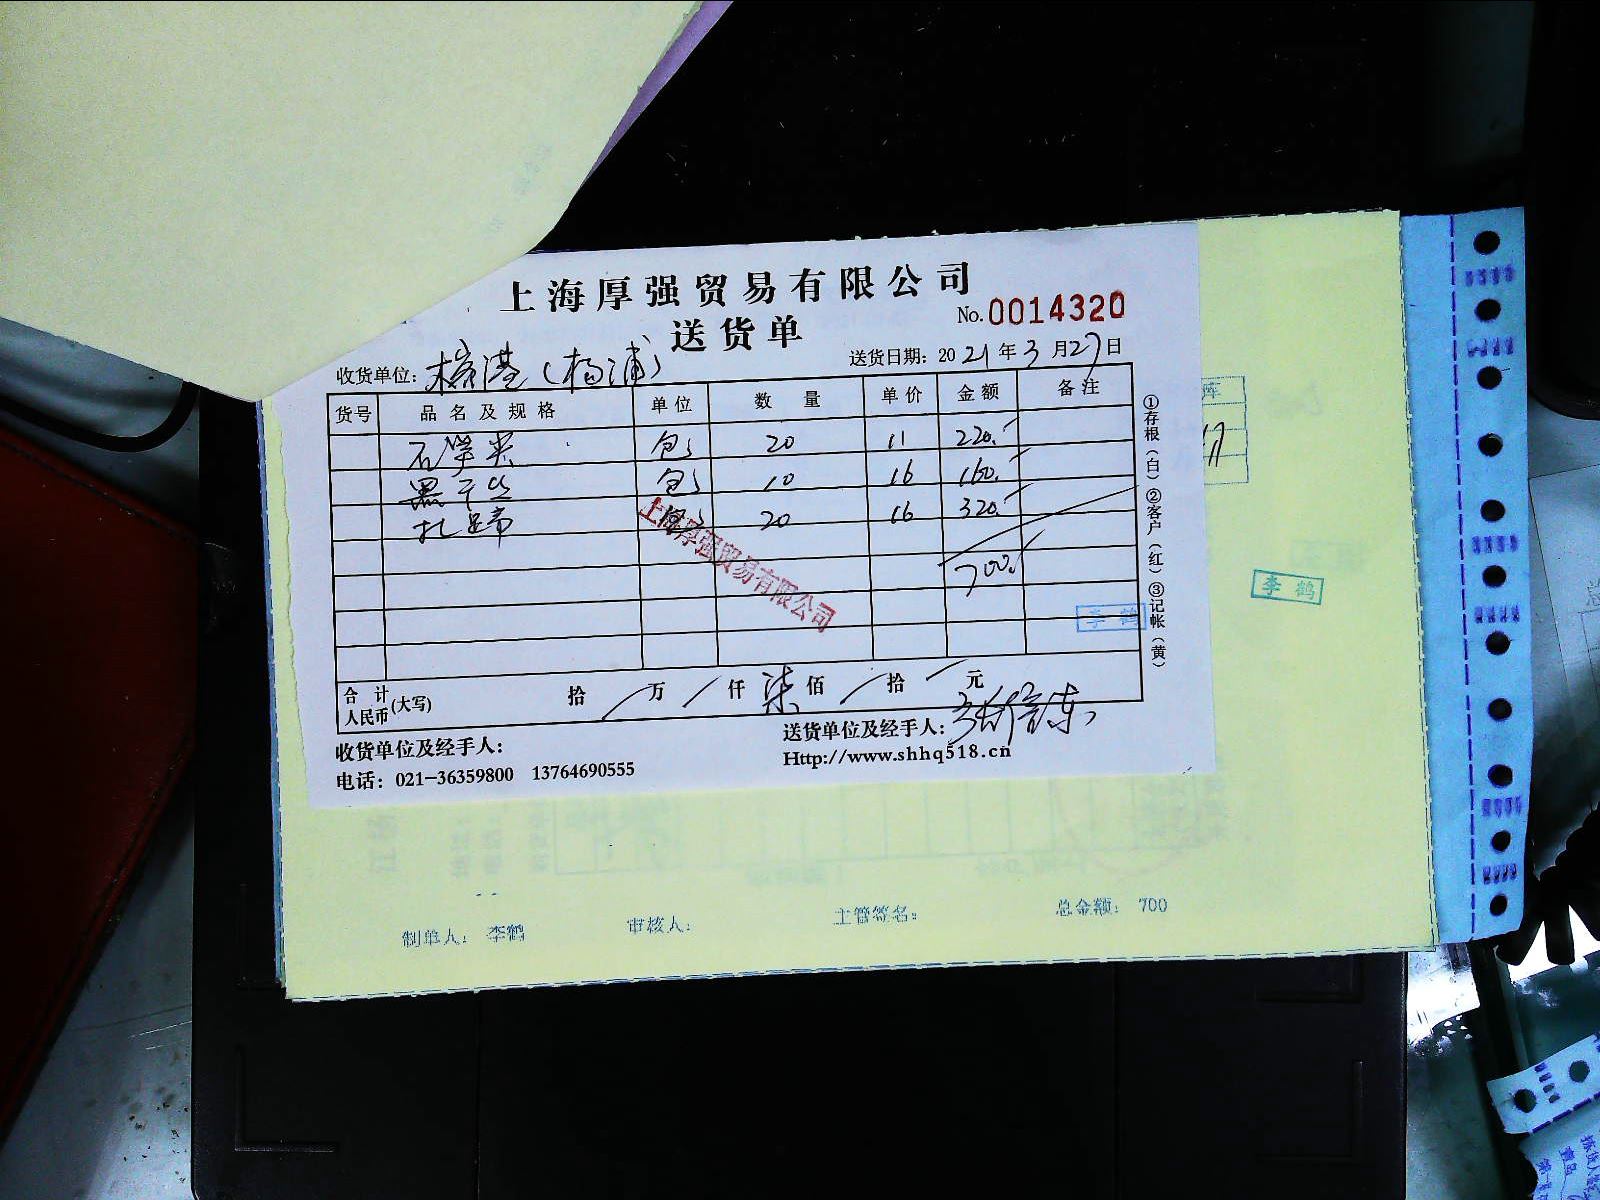 上海厚强贸易有限公司
送货单
No.0014320
收货单位：榕港（杨浦）
送货日期：2021年3月27日
货号 品名及规格 单位 数量 单价 金额 备注
包 20 11 220.
黑干丝 包 10 16 160.
扎蹄 20 16 320.
700.
上海厚强贸易有限公司
李鹤
合计人民币(大写) 拾 万 仟 柒 佰 拾 元
收货单位及经手人：
送货单位及经手人：
电话：021-36359800 13764690555
Http://www.shhq518.cn
①存根（白）②客户（红）③记帐（黄）
库
李鹤
制单人：李鹤 审核人： 主管签名： 总金额：700